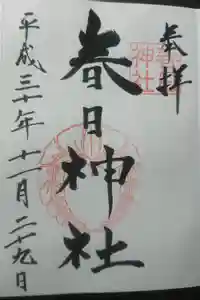 奉拝
春日神社
平成三十年十一月二十九日